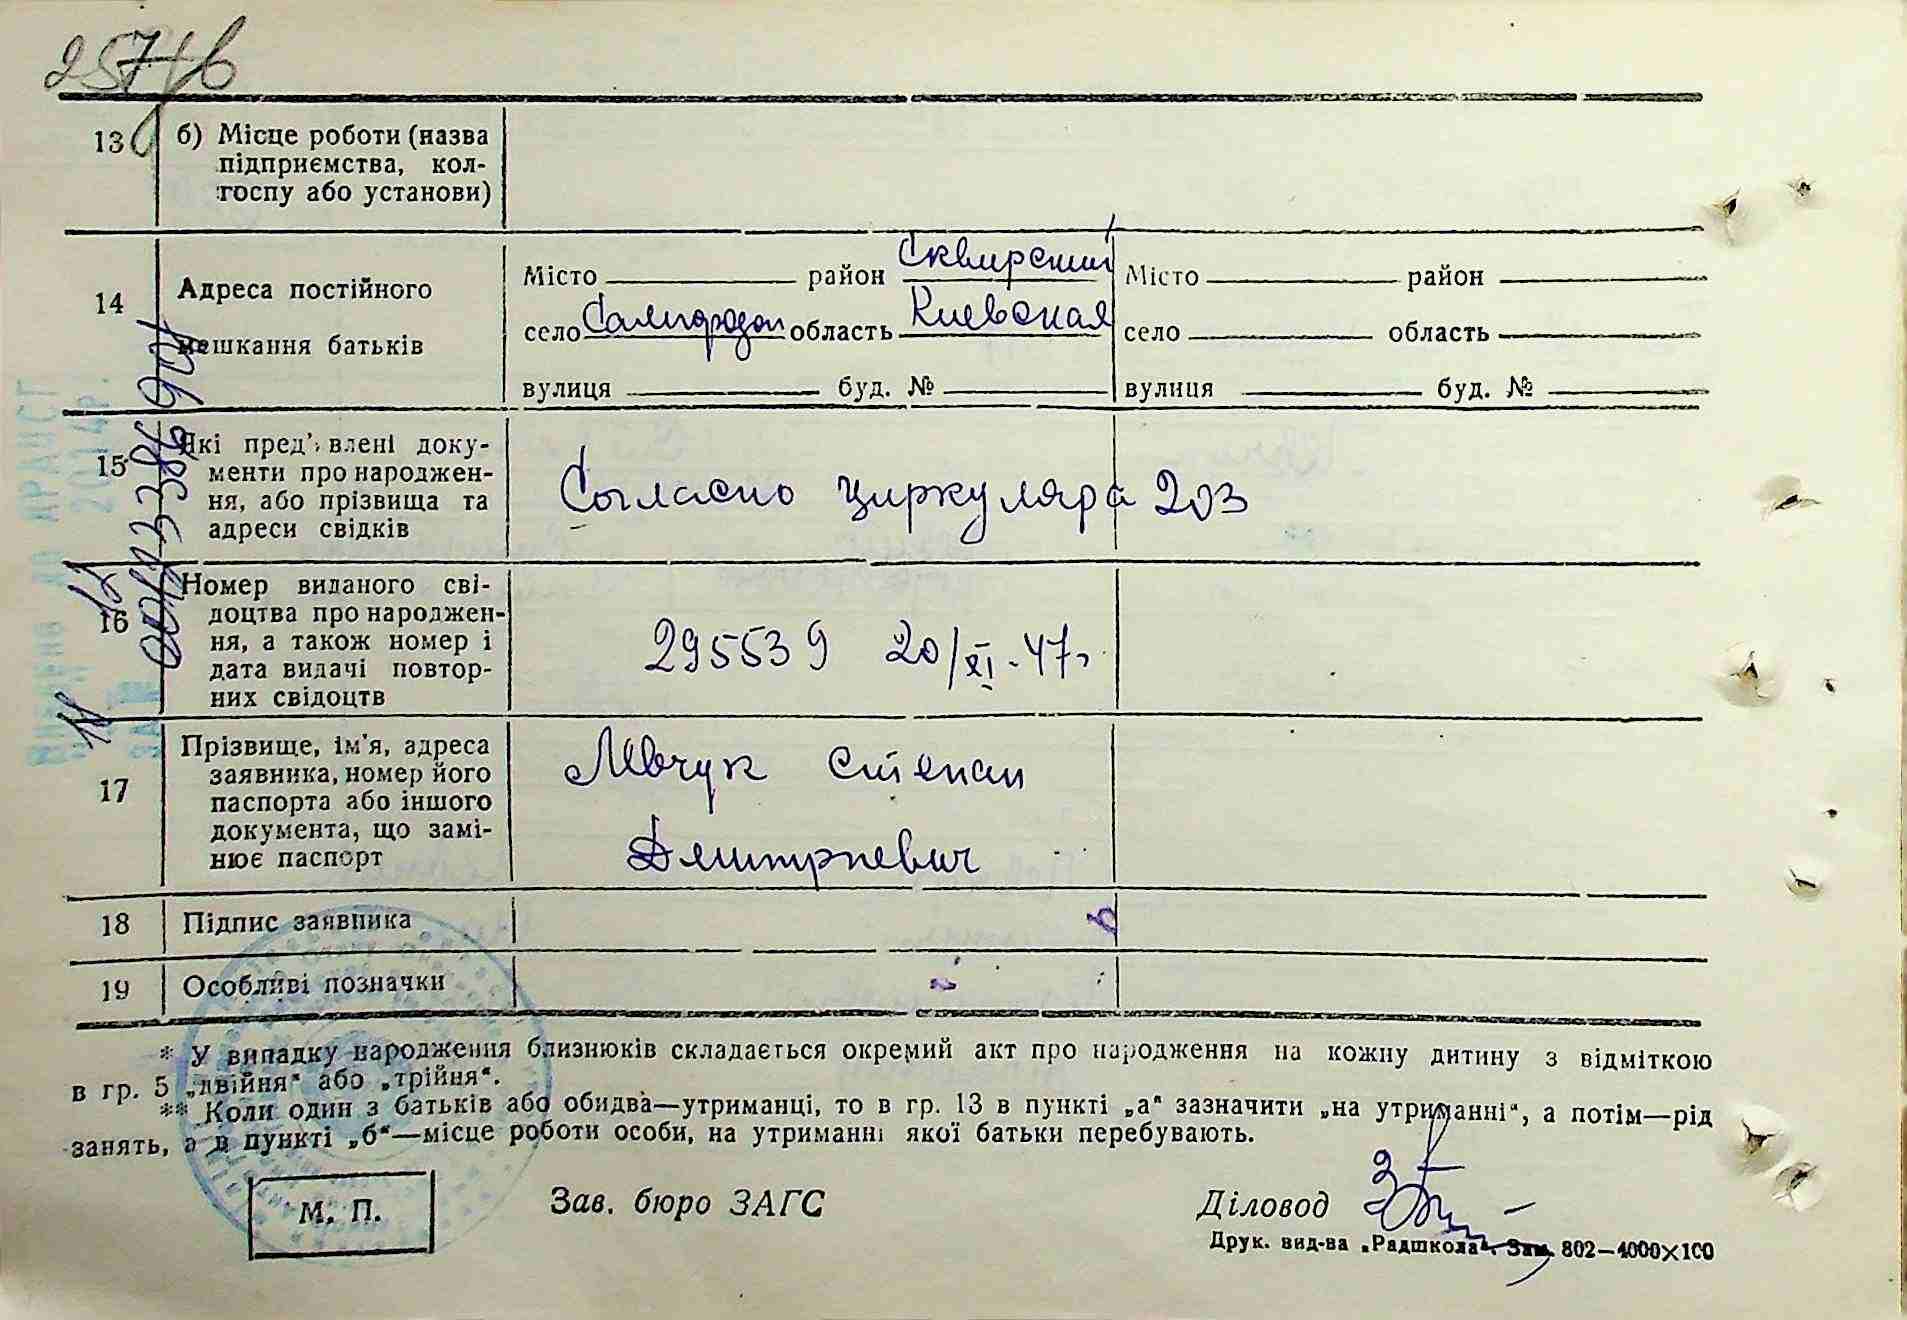 13 б) Місце роботи (назва
підприємства, кол-
госпу або установи)
14 Адреса постійного
мешкання батьків
Місто район Сквирский
село область Киевская
вулиця буд. №
Місто район
село область
вулиця буд. №
15 Які пред'явлені доку-
менти про народжен-
ня, або прізвища та
адреси свідків
Согласно циркуляра 203
16 Номер виданого сві-
доцтва про народжен-
ня, а також номер і
дата видачі повтор-
них свідоцтв
295539 20/XI-47г
17 Прізвище, ім'я, адреса
заявника, номер його
паспорта або іншого
документа, що замі-
нює паспорт
Степан
Дмитриевич
18 Підпис заявника
19 Особливі позначки
* У випадку народження близнюків складається окремий акт про народження на кожну дитину з відміткою
в гр. 5 „двійня“ або „трійня“.
** Коли один з батьків або обидва—утриманці, то в гр. 13 в пункті „а“ зазначити „на утриманні“, а потім—рід
занять, а в пункті „б“—місце роботи особи, на утриманні якої батьки перебувають.
М. П.
Зав. бюро ЗАГС
Діловод
Друк. вид-ва „Радшкола“. Зам. 802—4000×100